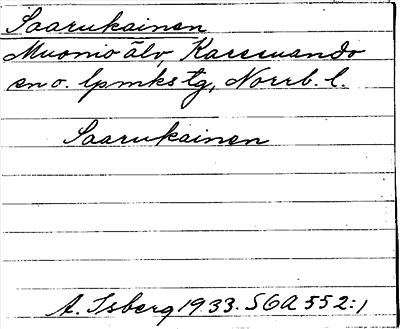 Saarukainen
Muonio älv, Karesuando
sn o. lpmks tg, Norrb. l.
Saarukainen
A. Isberg 1933. SGA 552:1